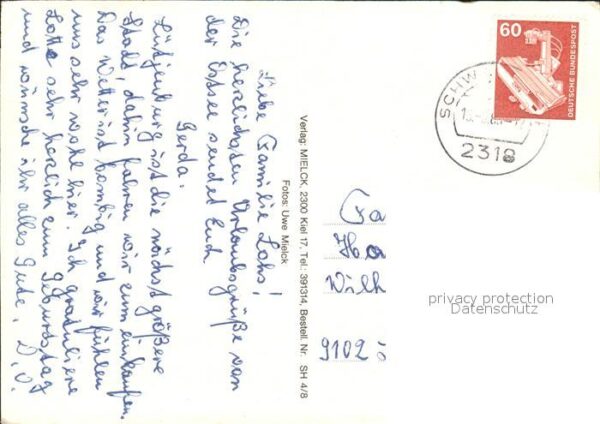 Liebe Familie Lahs!
Die herzlichsten Urlaubsgrüße von
der Ostsee sendet Euch
Gerda.
Lütjenburg ist die nächst größere
Stadt, dahin fahren wir zum einkaufen.
Das Wetter ist bombig und wir fühlen
uns sehr wohl hier. Ich gratuliere
Lotte sehr herzlich zum Geburtstag
und wünsche ihr alles Gute. D.O.
Verlag: MIELCK, 2300 Kiel 17, Tel.: 391314, Bestell. Nr. SH 4/8
Fotos: Uwe Mielck
60
DEUTSCHE BUNDESPOST
SCHW
2319
Fa
Ha
Wilh
9102
privacy protection
Datenschutz